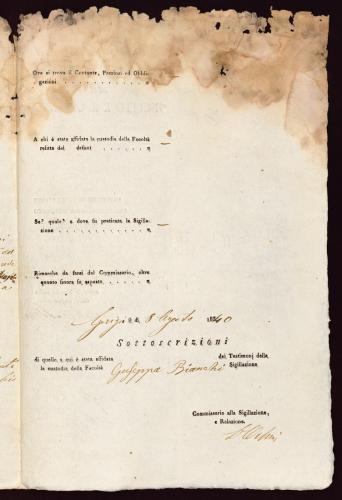 Ove si trova il Contante, Preziosi ed Obbli-
gazioni . . . . . . . . . . . . . "
A chi è stata affidata la custodia della Facoltà
relata del defunt . . . . . . . . . "
Se? quale? e dove fu praticata la Sigilla-
zione . . . . . . . . . . . . . . "
Rimarche da farsi dal Commissario, oltre
quanto finora fu esposto . . . . . . . "
li 8 Agosto 1840
Sottoscrizioni
di quello, a cui è stata affidata
la custodia della Facoltà
Giuseppa Bianchi
dei Testimonj della
Sigillazione
Commissario alla Sigillazione,
e Relazione.